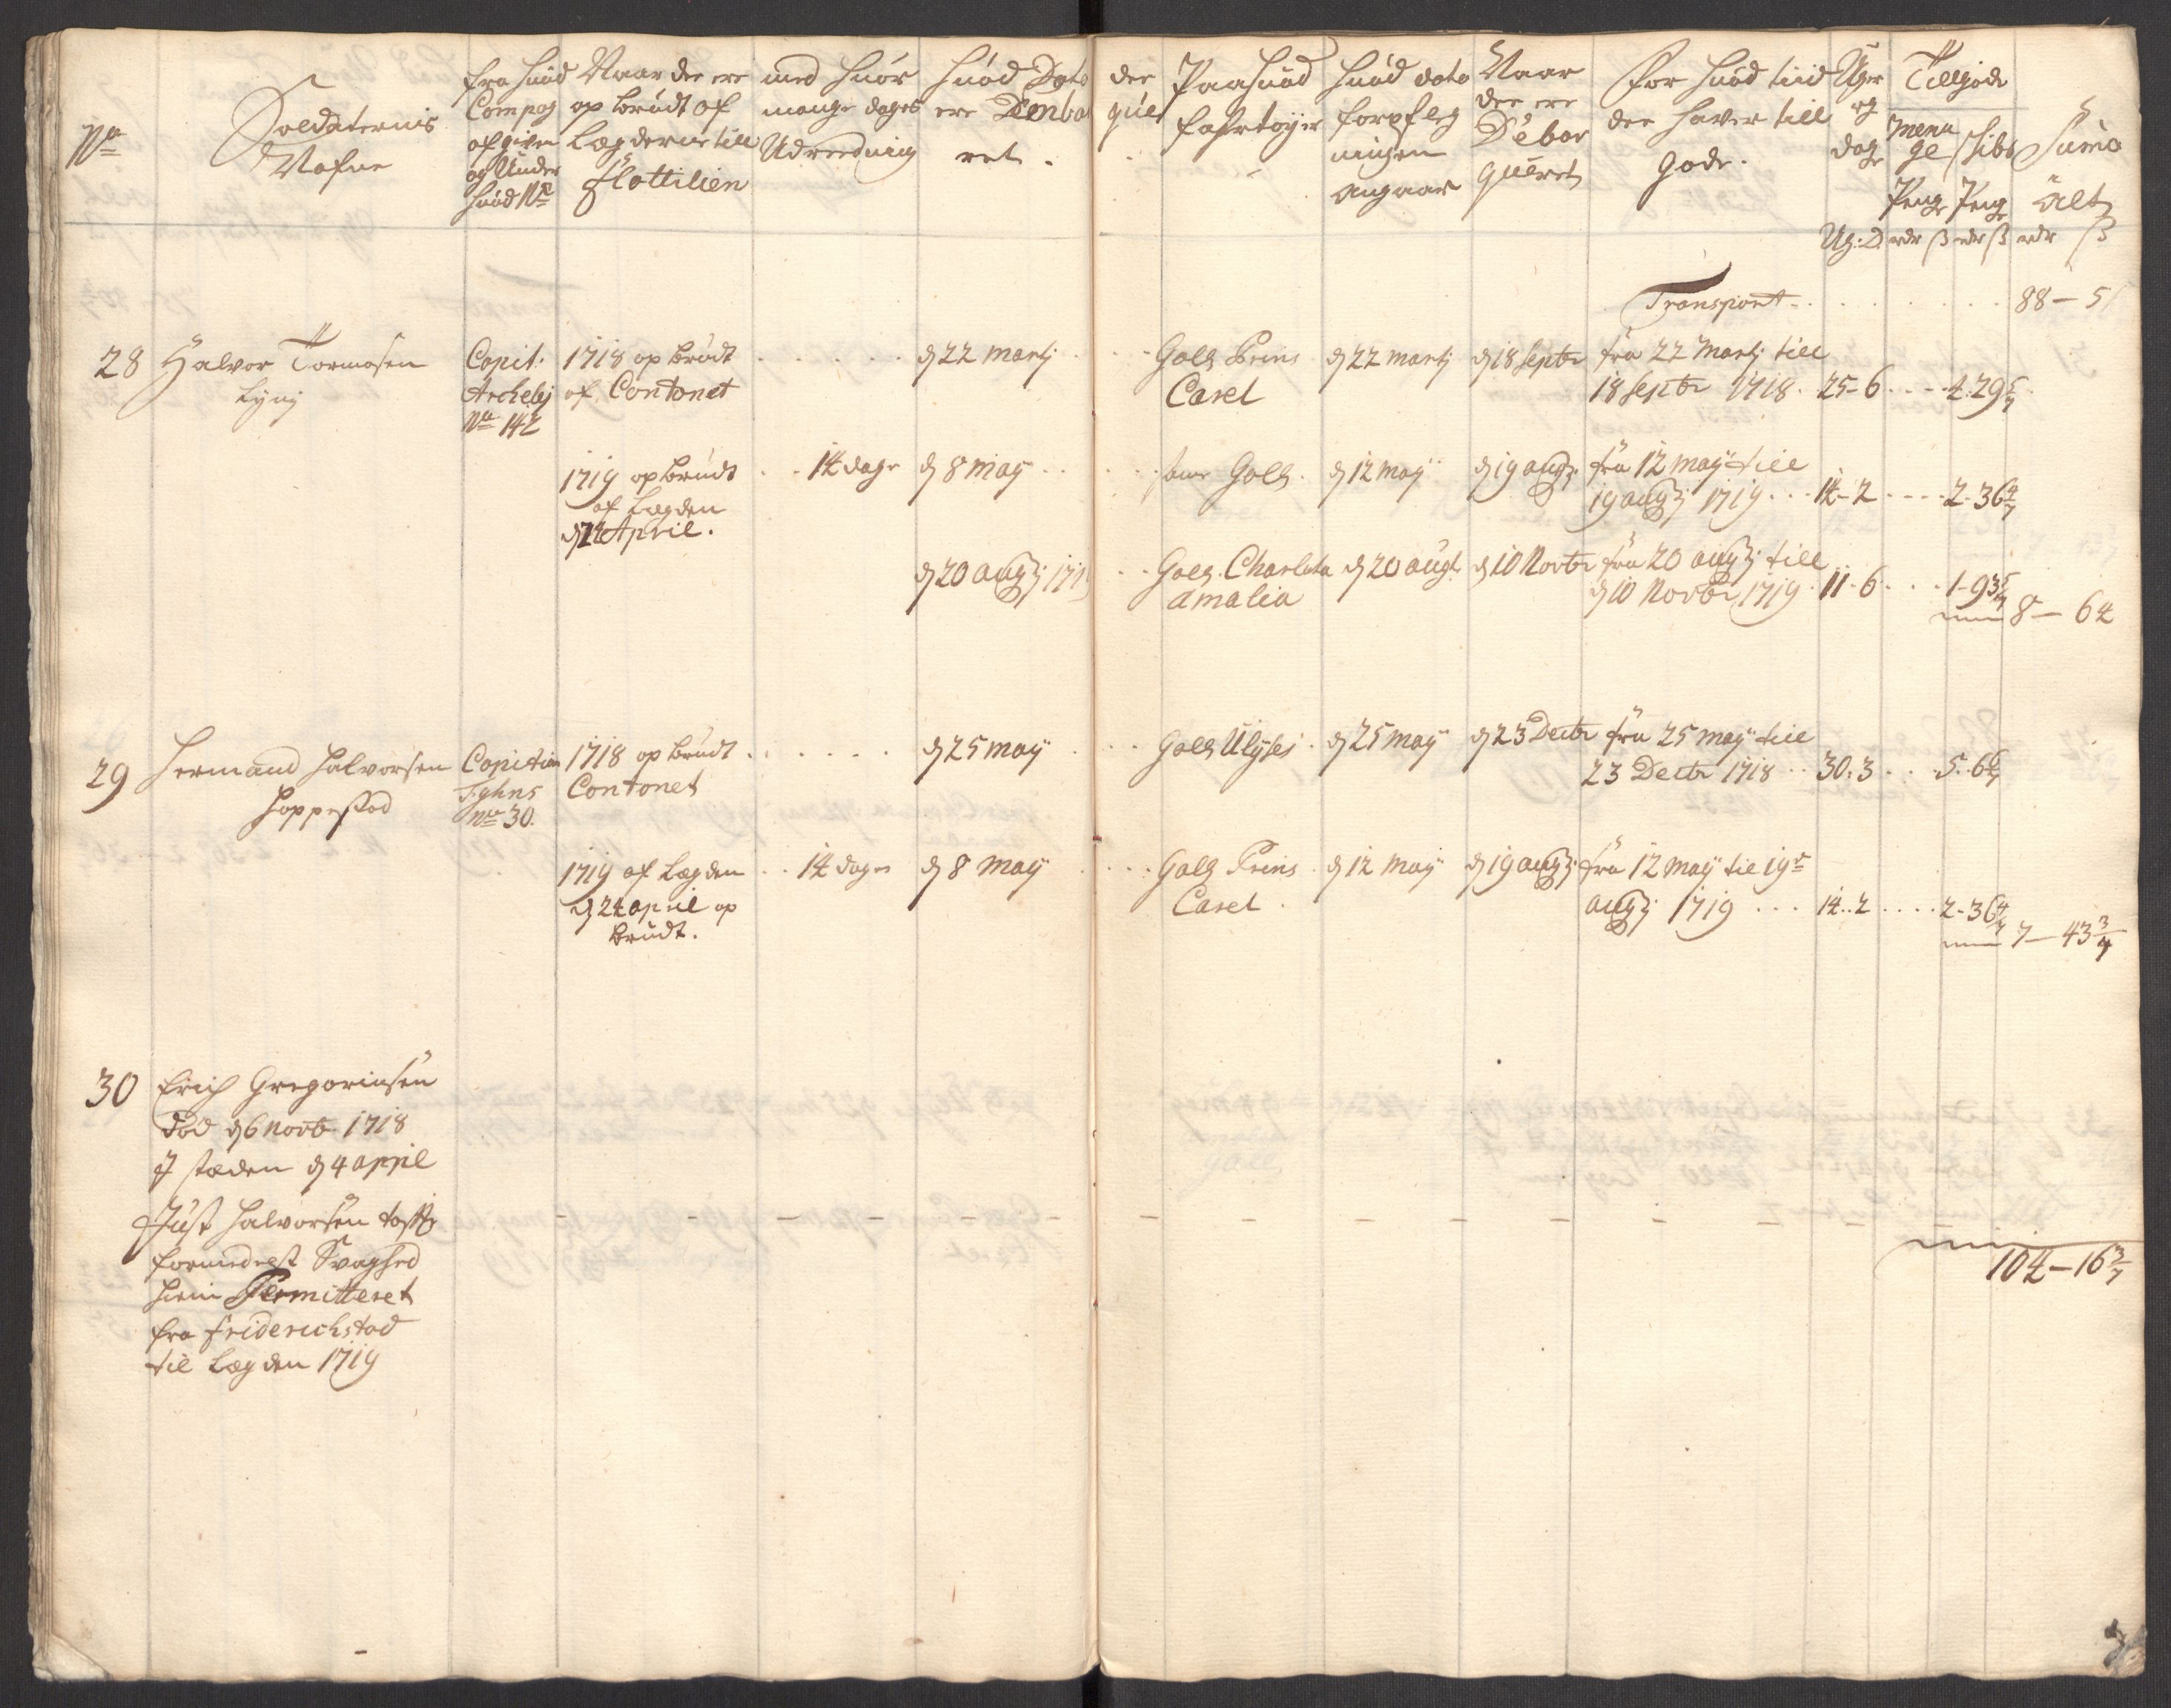 No
Soldaternis
Nafne
fra huad
Compag
afgiven
og Under
huad No
Naar de ere
op brudt af
Lægderne till
Flottilien
med huor
mange dages
Udreedning
huad Dato de
ereEmbarqueret.
Paa huad
fahrtøyer
huad dato
forpfleg
ningen
angaar
Naar
de ere
Debar
queret
for huad tiid
der haver till
gode.
Uger
og
dage
Tillgode
mena
ge
Penge
skibs
Penge
Suma
alt
Ug: D rdr ß rdr ß rdr ß
Transport . . . . . . . . 88 – 5
28 Halvor Tormosen
Lÿnj
Capit:
Archeleÿ
No 142
1718 op brudt
af Contonet
. . . . . d 22 martj . .
Gall Prins
Carel
d 22 martj
d 18 Septbr
fra 22 Martj till
18 Septbr 1718. 25-6 . . . . 4. 29 5/7
1719 op brudt
af Lægden
d 24 April.
. . 14 dage d 8 maÿ . .
samme Gall. d 12 maÿ d 19 augtj
fra 12 maÿ till
19 augtj 1719 . . . 14-2 . . . . 2. 36 4/7
d 20 augtj 1719
Gall. Charlota
amalia
d 20 augt d 10 Novbr
fra 20 augtj till
d 10 Novbr 1719. 11-6 . . . 1-93 5/7
8 – 64
29 Hermand Halvorsen
Hoppestad
Capitain
Tÿhns
No 30.
1718 op brudt
Contonet
. . . . . d 25 maÿ
Gall Ulÿses. d 25 maÿ d 23 Decbr
fra 25 maÿ till
23 Decbr 1718 . . 30. 3 . . . 5. 6 6/7
1719 af Lægden
d 24 april op
brudt.
. . 14 dage d 8 Maÿ
Gall Prins
Carel.
d 12 Maÿ d 19 augtj
fra 12 Maÿ til 19de
augtj 1719 . . . 14..2 . . . . 2-36 4/7
7 – 43 3/7
30 Erich Gregoriusen
død d 6 Novb 1718
J stæden d 4 appil
Just Halvorsen
formedelst Svaghed
hiem Permitteret
fra friderichstad
til Lægden 1719
104 – 16 3/7